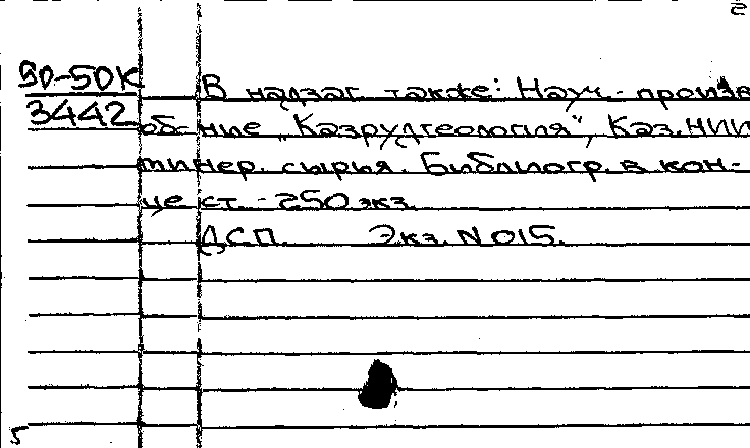 2
90-50К
В надзаг. также: Науч.-произв
3442
об-ние „Казрудгеология", Каз.НИИ
минер. сырья. Библиогр. в кон-
це ст. - 250 экз.
ДСП. Экз. N 015.
5